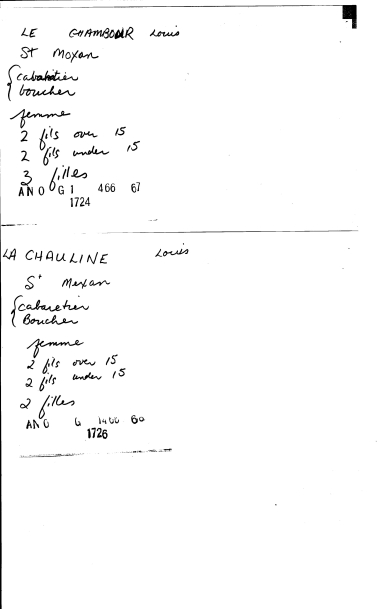 LE CHAMBOUR Louis
St Moxan
cabaretier
boucher
femme
2 fils over 15
2 fils under 15
3 filles
ANO G1 466 67
1724
LA CHAULINE Louis
St Mexan
cabaretier
Boucher
femme
2 fils over 15
2 fils under 15
2 filles
ANO G 1466 60
1726